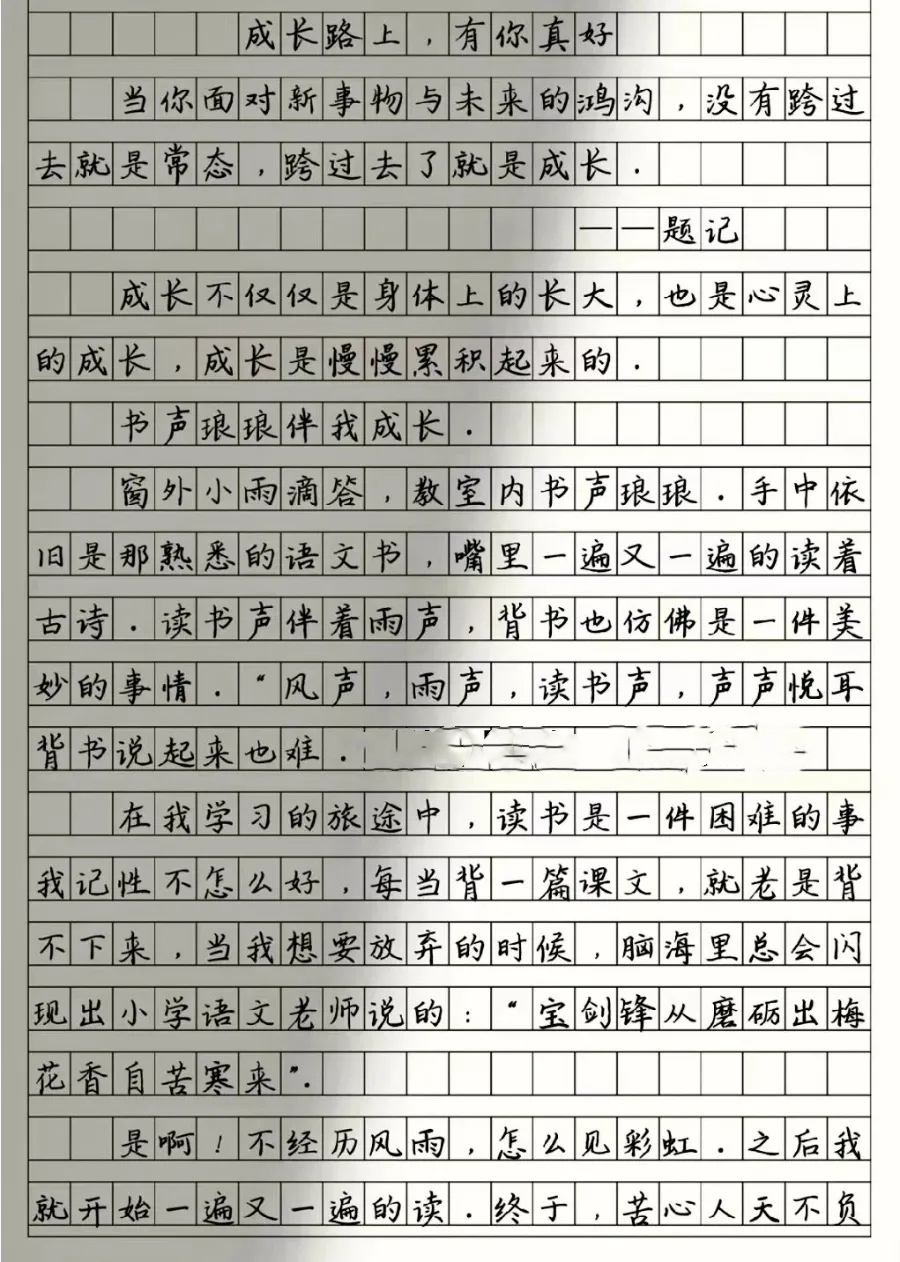 成长路上，有你真好
当你面对新事物与未来的鸿沟，没有跨过
去就是常态，跨过去了就是成长．
——题记
成长不仅仅是身体上的长大，也是心灵上
的成长，成长是慢慢累积起来的．
书声琅琅伴我成长．
窗外小雨滴答，教室内书声琅琅．手中依
旧是那熟悉的语文书，嘴里一遍又一遍的读着
古诗．读书声伴着雨声，背书也仿佛是一件美
妙的事情．“风声，雨声，读书声，声声悦耳
背书说起来也难．
在我学习的旅途中，读书是一件困难的事
我记性不怎么好，每当背一篇课文，就老是背
不下来，当我想要放弃的时候，脑海里总会闪
现出小学语文老师说的：“宝剑锋从磨砺出梅
花香自苦寒来”．
是啊！不经历风雨，怎么见彩虹．之后我
就开始一遍又一遍的读．终于，苦心人天不负